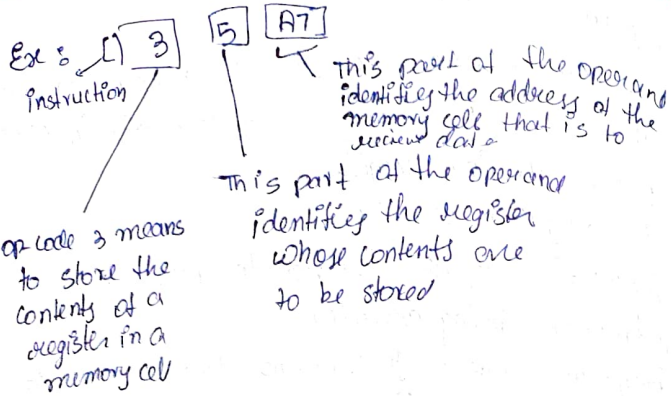 Ex : [] 3 5 A7
instruction
This part of the operand
identifies the address of the
memory cell that is to
recieve data
This part of the operand
identifies the register
whose contents are
to be stored
op code 3 means
to store the
contents of a
register in a
memory cell